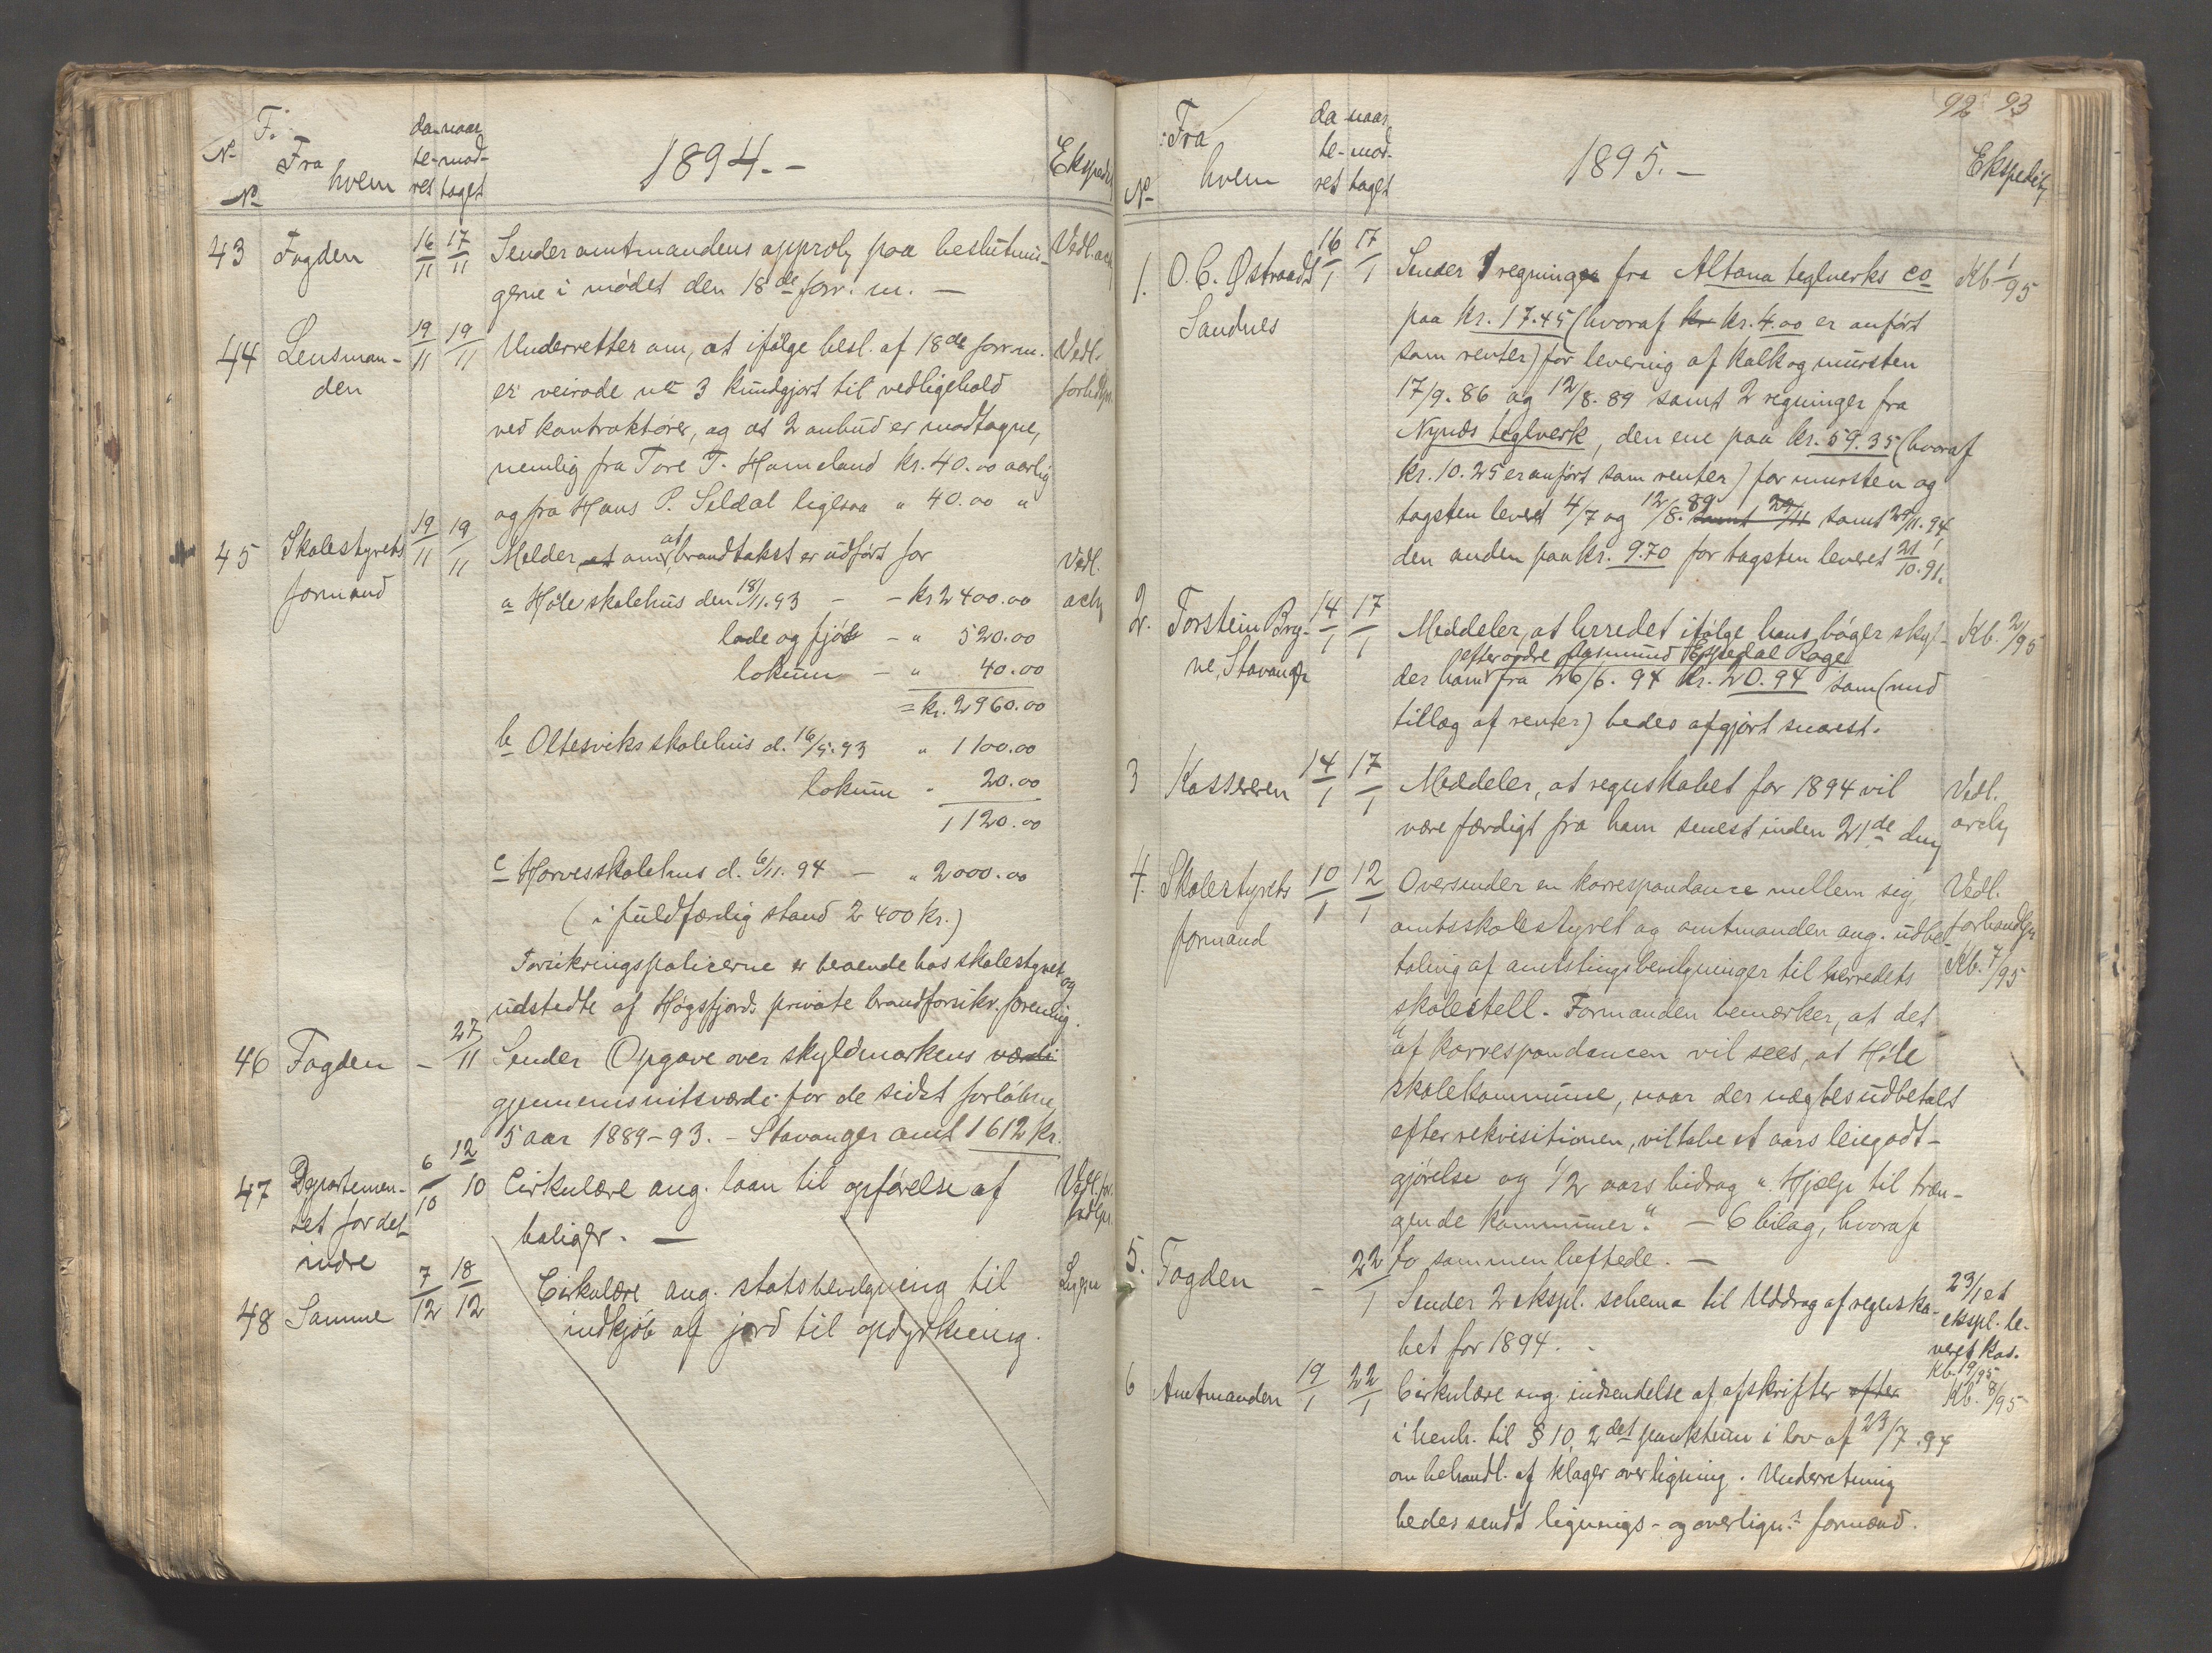 F.
No
Fra
hvem
No
da-
te-
ret
naar
mod-
taget
1894.-
Eksped.
43 Fogden 16/11 17/11 Sender amtmandens approb. paa beslutnin-
gerne i mødet den 18de forr. m. —
Vedl. arch
44 Lensman-
den 19/11 19/11 Underretter om, at ifølge besl. af 18de forr. m.
er veirode no 3 kundgjort til vedligehold
ved kontraktører, og at 2 anbud er modtagne,
nemlig fra Tore T. Hameland kr. 40.00 aarlig
og fra Hans P. Seldal ligesaa " 40.00 "
Vedl.
45 Skolestyrets
formand 19/11 19/11 Melder at om, at brandtakst er udført for
a Høle skolehus den 18/11.93 - - kr 2400.00
lade og fjøs - " 520.00
lokum - " 40.00
= kr. 2960.00
b Oltesviks skolehus d. 16/5.93 " 1100.00
lokum " 20.00
1120.00
c Horvesskolehus d. 6/11.94 — " 2000.00
(i fuldfærdig stand 2400 kr.)
Forsikringspolicerne er beroende hos skolestyret og
udstedte af Høgsfjords private brandforsikr. forening.
Vedl.
arch
46 Fogden - 27/11 Sender Opgave over skyldmarkens værdi
gjennemsnitsværdi for de sidst forløbne
5 aar 1889-93. - Stavanger amt 1612 kr.
47 Departemen-
tet for det
indre 6/10 12/10 Cirkulære ang. laan til opførelse af
boliger. —
Vedl. for-
48 Samme 7/12 18/12 Cirkulære ang. statsbevilgning til
indkjøb af jord til opdyrkning.
Ligesn
92 93
No
Fra
hvem
da-
te-
ret
naar
mod-
taget
1895.-
Ekspedit.
1. O. C. Østraadt
Sandnes 16/1 17/1 Sender 1 regninger fra Altona teglverks co
paa kr. 17.45 (hvoraf kr kr. 4.00 er anført
som renter) for levering af kalk og mursten
17/9.86 og 12/8.89 samt 2 regninger fra
Nynæs teglverk, den ene paa kr. 59.35 (hvoraf
kr. 10.25 er anført som renter) for mursten og
tagsten levert 4/7 og 12/8.89 samt 29/11 samt 29/11.94
den anden paa kr. 9.70 for tagsten leveret 21/10.91.
Kb 1/95
2. Torstein Bry-
ne, Stavanger 14/1 17/1 Meddeler, at herredet ifølge hans bøger skyl-
efter ordre Aasmund Espedal Rage
der ham fra 26/6.94 kr. 20.94 som (med
tillæg af renter) bedes afgjort snarest.
Kb. 2/95
3 Kassereren 14/1 17/1 Meddeler, at regnskabet for 1894 vil
være færdigt fra ham senest inden 21de dns
Vedl.
arch
4. Skolestyrets
formand 10/1 12/1 Oversender en korrespondance mellem sig,
amtsskolestyret og amtmanden ang. udbe-
taling af amtstingsbevilgninger til herredets
skolestell. Formanden bemærker, at det
af korrespondancen vil sees, at Høle
skolekommune, naar der nægtes udbetalt
efter rekvisitionen, vil tabe et aars leiegodt-
gjørelse og 1/2 aars bidrag "Hjælp til træn-
gende kommuner". — 6 bilag, hvoraf
to sammenheftede. —
Vedl.
forhandlgn
Kb. 7/95
5. Fogden - 22/1 Sender 2 ekspl. schema til Uddrag af regnska-
bet for 1894.
23/1 et
ekspl. le-
veret kas.
Kb. 19/95
6 Amtmanden 19/1 22/1 Cirkulære ang. indsendelse af afskrifter efter
i henh. til § 10, 2det punktum i lov af 23/7.94
om behandl. af klager over ligning. Underretning
bedes sendt lignings- og overlign.s formænd.
Kb. 8/95